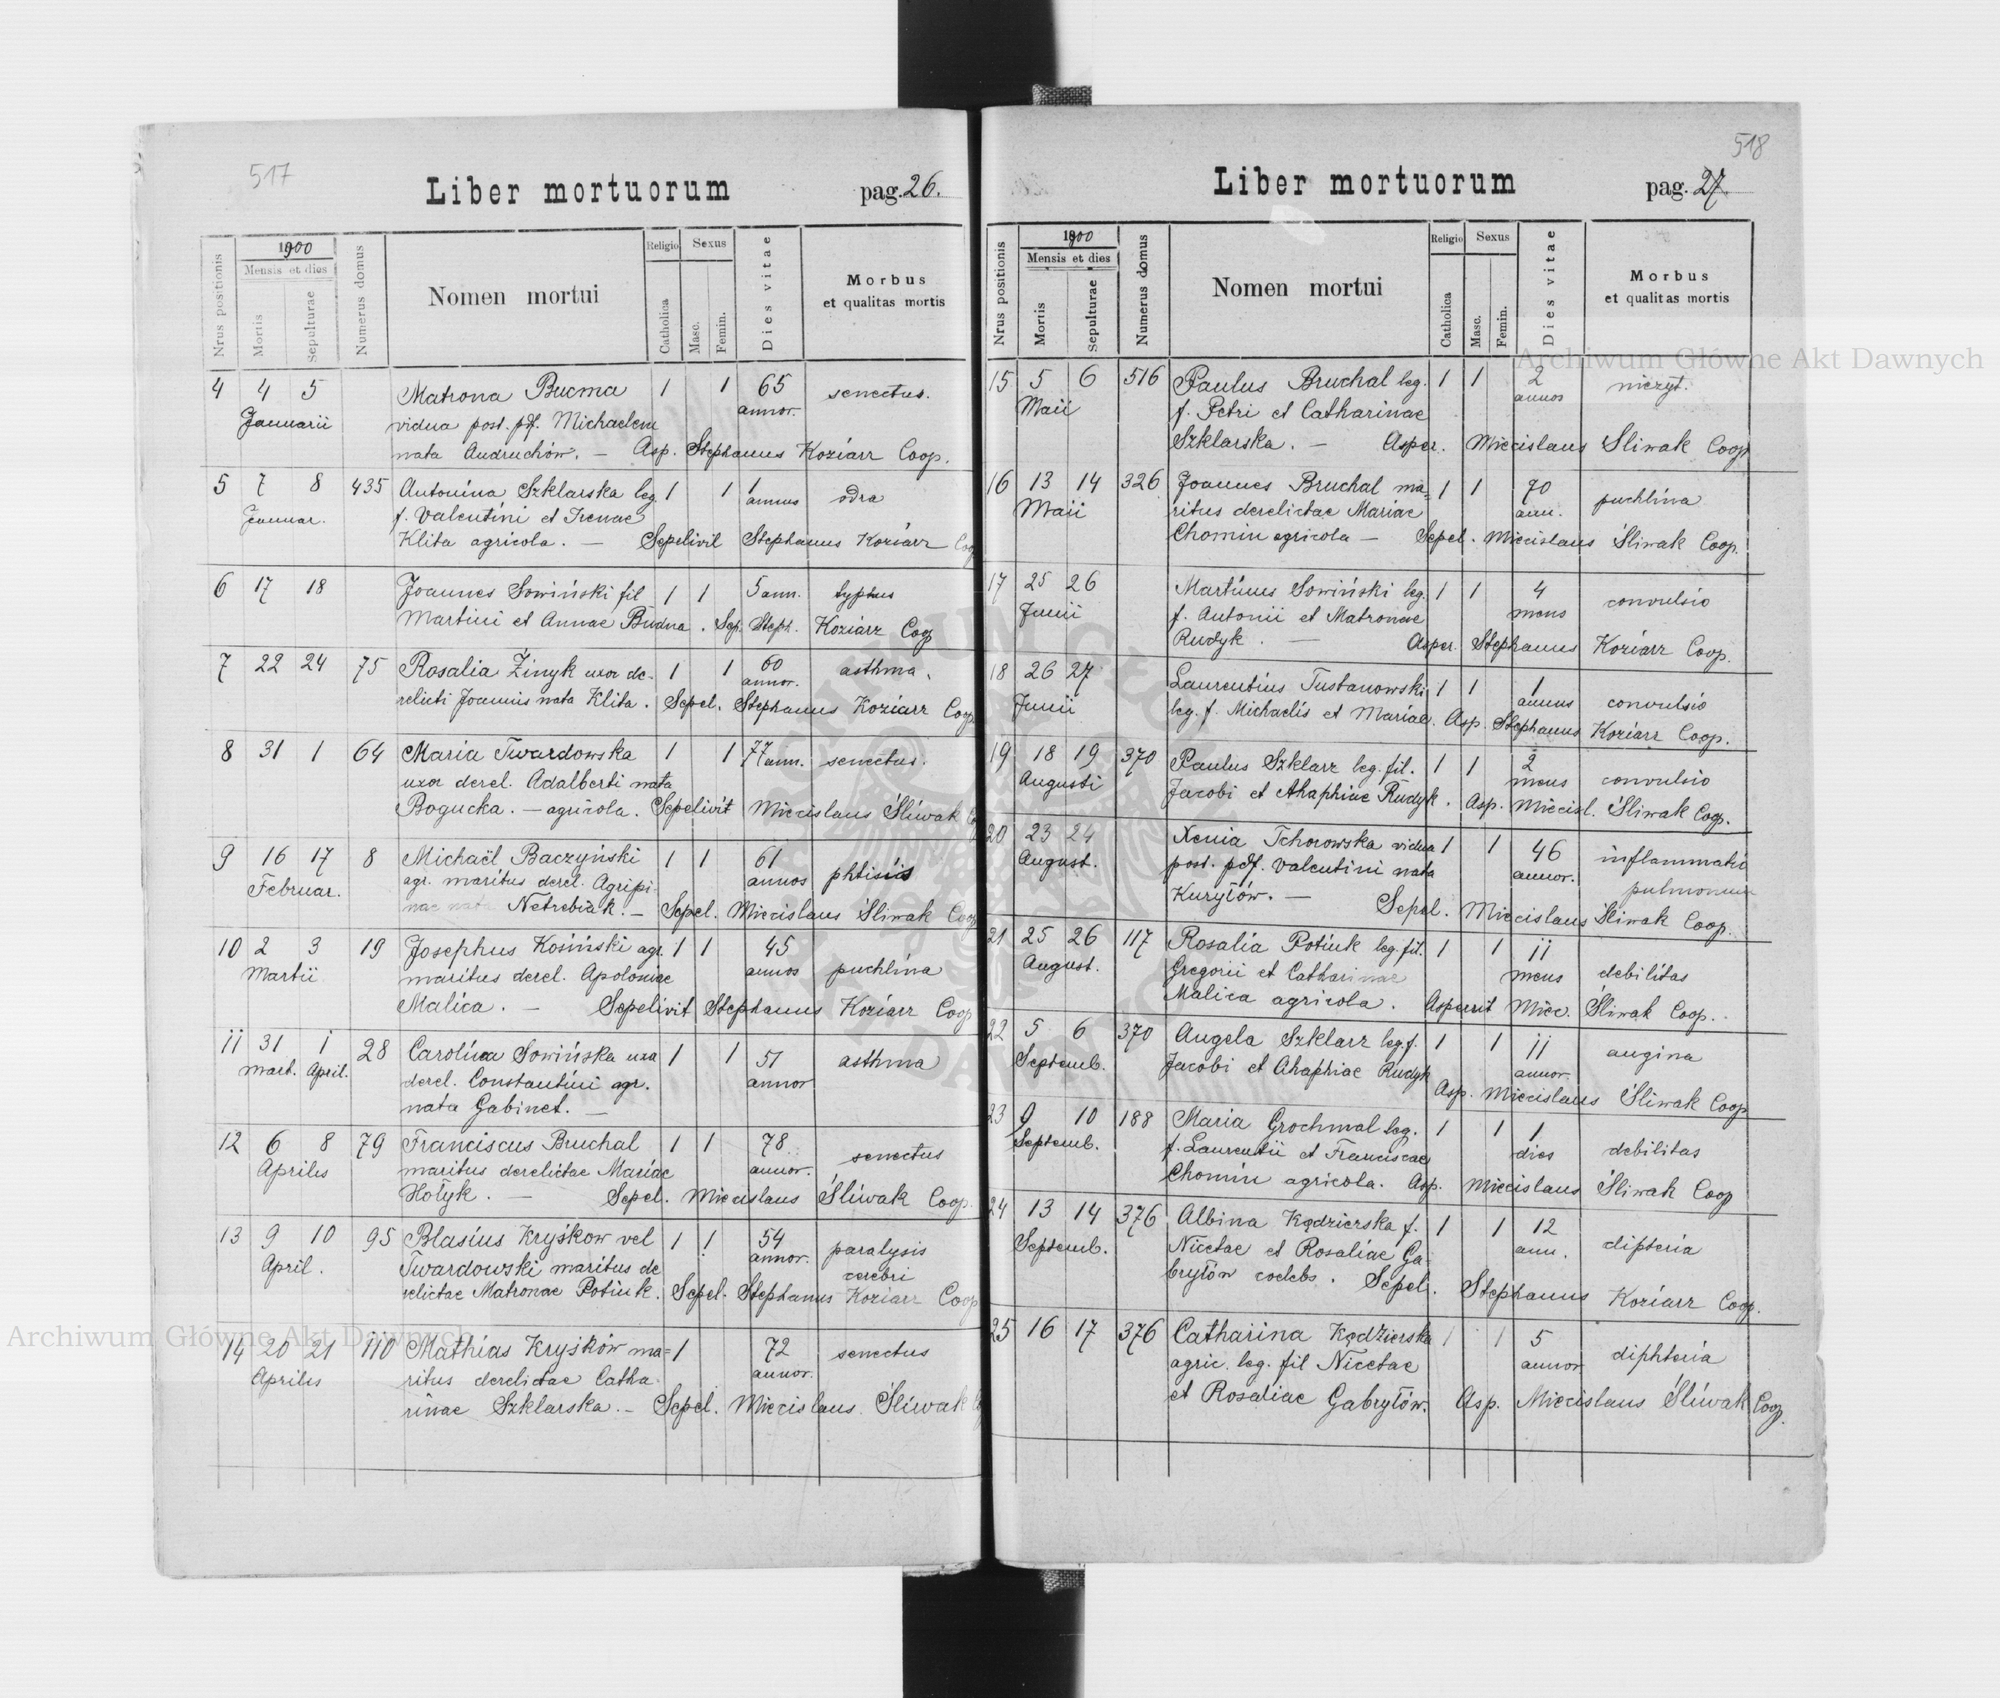 517
Liber mortuorum pag. 26.
Nrus positionis
1900
Mensis et dies
Mortis
Sepulturae
Numerus domus
Nomen mortui
Religio
Catholica
Sexus
Masc.
Femin.
Dies vitae
Morbus
et qualitas mortis
4 4 5 Matrona Bucma 1 1 65 senectus.
Januarii vidua post. pdf. Michaelem annor.
nata Andruchów. — Asp. Stephanus Koziarz Coop.
5 7 8 435 Antonina Szklarska leg. 1 1 1 annus odra
Januar. f. Valentini et Irenae
Klita agricola. — Sepelivit Stephanus Koziarz Coop
6 17 18 Joannes Sowiński fil 1 1 5 ann. typhus
Martini et Annae Budna. Sep. Steph. Koziarz Coop
7 22 24 75 Rosalia Żinyk uxor de- 1 1 60 annor. asthma.
relicti Joannis nata Klita. Sepel. Stephanus Koziarz Coop
8 31 1 64 Maria Twardowska 1 1 77 ann. senectus.
uxor derel. Adalberti nata
Bogucka. — agricola. Sepelivit Miecislaus Śliwak
9 16 17 8 Michaël Baczyński 1 1 61 phtisiis
Februar. agr. maritus derel. Agripi- annos
nae nata Netrebiak. — Sepel. Miecislaus Śliwak Coop
10 2 3 19 Josephus Kosiński agr. 1 1 45
Martii maritus derel. Apoloniae annos puchlina
Malica. — Sepelivit Stephanus Koziarz Coop
11 31 1 28 Carolina Sowińska uxor 1 1 51 asthma
Mart. April. derel. Constantini agr. annor
nata Gabinet. —
12 6 8 79 Franciscus Bruchal 1 1 78 senectus
Aprilis maritus derelictae Mariae annor.
Hołyk. — Sepel. Miecislaus Śliwak Coop.
13 9 10 95 Blasius Kryśkow vel 1 1 54 paralysis
April. Twardowski maritus de annor. cerebri
relictae Matronae Potiuk. Sepel. Stephanus Koziarz Coop
14 20 21 110 Mathias Kryśków ma= 1 72 senectus
Aprilis ritus derelictae Catha- annor.
rinae Szklarska. — Sepel. Miecislaus Śliwak
518
Liber mortuorum pag. 27.
Nrus positionis
1900
Mensis et dies
Mortis
Sepulturae
Numerus domus
Nomen mortui
Religio
Catholica
Sexus
Masc.
Femin.
Dies vitae
Morbus
et qualitas mortis
15 5 6 516 Paulus Bruchal leg. 1 1 2 nieżyt.
Maii f. Petri et Catharinae annos
Szklarska. — Asper. Miecislaus Śliwak Coop
16 13 14 326 Joannes Bruchal ma= 1 1 70 puchlina
Maii ritus derelictae Mariae ann.
Chomin agricola — Sepel. Miecislaus Śliwak Coop.
17 25 26 Martinus Sowiński leg. 1 1 4 convulsio
Junii f. Antonii et Matronae mens
Rudyk. — Asper. Stephanus Koziarz Coop.
18 26 27 Laurentius Tustanowski 1 1 1 annus convulsio
Junii leg. f. Michaelis et Mariae. Asp. Stephanus Koziarz Coop.
19 18 19 370 Paulus Szklarz leg. fil. 1 1 2 mens convulsio
Augusti Jacobi et Ahaphiae Rudyk. Asp. Miecisl. Śliwak Coop.
20 23 24 Xenia Tchorowska vidua 1 1 46 inflammatio
August. post. pdf. Valentini nata annor. pulmonum
Kuryłów. — Sepel. Miecislaus Śliwak Coop.
21 25 26 117 Rosalia Potiuk leg. fil. 1 1 11 debilitas
August. Gregorii et Catharinae mens
Malica agricola. Asperit Miec. Śliwak Coop.
22 5 6 370 Angela Szklarz leg. f. 1 1 11 angina
Septemb. Jacobi et Ahaphiae Rudyk annor.
Asp. Miecislaus Śliwak Coop
23 9 10 188 Maria Grochmal leg. 1 1 1 debilitas
Septemb. f. Laurentii et Franciscae dies
Chomin agricola. Asp. Miecislaus Śliwak Coop
24 13 14 376 Albina Kędzierska f. 1 1 12 dipteria
Septemb. Nicetae et Rosaliae Ga- ann.
bryłów coelebs. Sepel. Stephanus Koziarz Coop.
25 16 17 376 Catharina Kędzierska 1 1 5 diphteria
agric. leg. fil Nicetae annor
et Rosaliae Gabryłów. Asp. Miecislaus Śliwak Coop.
Archiwum Główne Akt Dawnych
Archiwum Główne Akt Dawnych